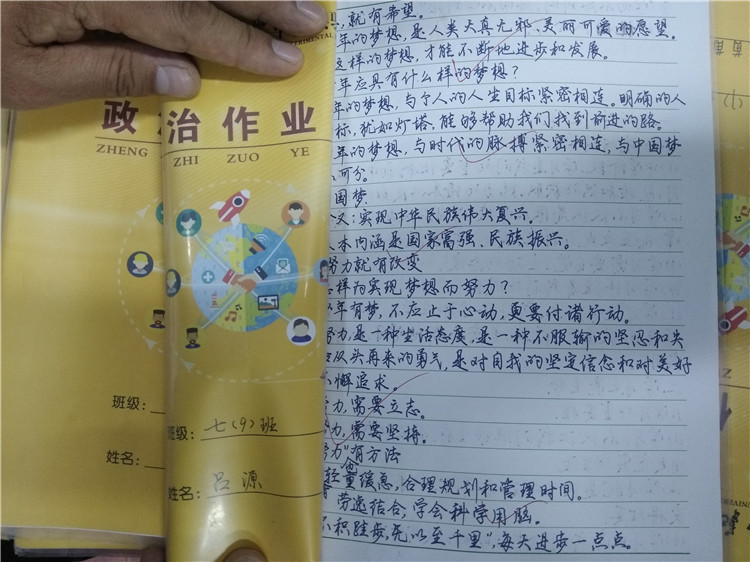 政治作业
ZHENG ZHI ZUO YE
班级:
七(9)班
姓名:
吕源
班级:
姓名:
,就有希望。
年的梦想,是人类天真无邪、美丽可爱的愿望。
这样的梦想,才能不断地进步和发展。
年应具有什么样的梦想?
年的梦想,与个人的人生目标紧密相连。明确的人
标,犹如灯塔,能够帮助我们找到前进的路。
年的梦想,与时代的脉搏紧密相连,与中国梦
可分。
国梦
义:实现中华民族伟大复兴。
本内涵是国家富强、民族振兴。
努力就有改变
怎样为实现梦想而努力?
年有梦,不应止于心动,更要付诸行动。
努力,是一种生活态度,是一种不服输的坚忍和失
后从头再来的勇气,是对自我的坚定信念和对美好
懈追求。
力,需要立志。
力,需要坚持。
努力"有方法
轻重缓急,合理规划和管理时间。
劳逸结合,学会科学用脑。
不积跬步,无以至千里",每天进步一点点。